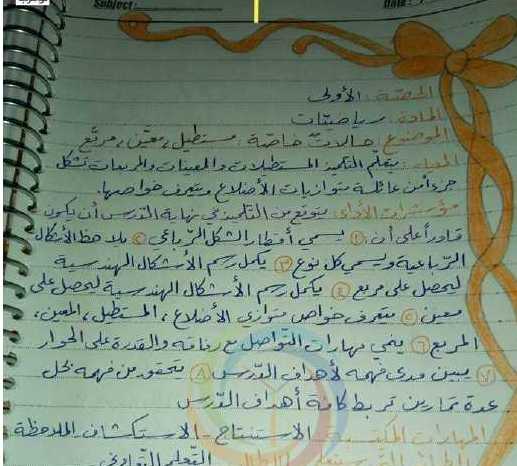 Subject: Date:
الحصة: الأولى
المادة: رياضيات
الموضوع: حالات خاصة: مستطيل، معين، مربع
المعيار: يتعلم التلميذ المستطيلات والمعينات والمربعات تشكل
جزءا من عائلة متوازيات الأضلاع ويتعرف خواصها.
مؤشرات الأداء: يتوقع من التلميذ في نهاية الدرس أن يكون
قادرا على أن: ① يسمي أقطار الشكل الرباعي ② يلاحظ الأشكال
الرباعية ويسمي كل نوع ③ يكمل رسم الأشكال الهندسية
ليحصل على مربع ④ يكمل رسم الأشكال الهندسية ليحصل على
معين ⑤ يتعرف خواص متوازي الأضلاع، المستطيل، المعين،
المربع ⑥ ينمي مهارات التواصل مع رفاقه والقدرة على الحوار
⑦ يبين مدى فهمه لأهداف الدرس ⑧ يتحقق من فهمه بحل
عدة تمارين تربط كافة أهداف الدرس
المهارات المكتسبة: الاستنتاج - الاستكشاف - الملاحظة
التعلم التعاوني